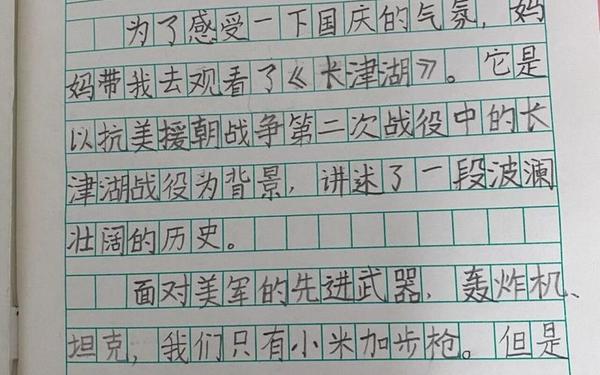 为了感受一下国庆的气氛，妈
妈带我去观看了《长津湖》。它是
以抗美援朝战争第二次战役中的长
津湖战役为背景，讲述了一段波澜
壮阔的历史。
面对美军的先进武器，轰炸机、
坦克，我们只有小米加步枪。但是